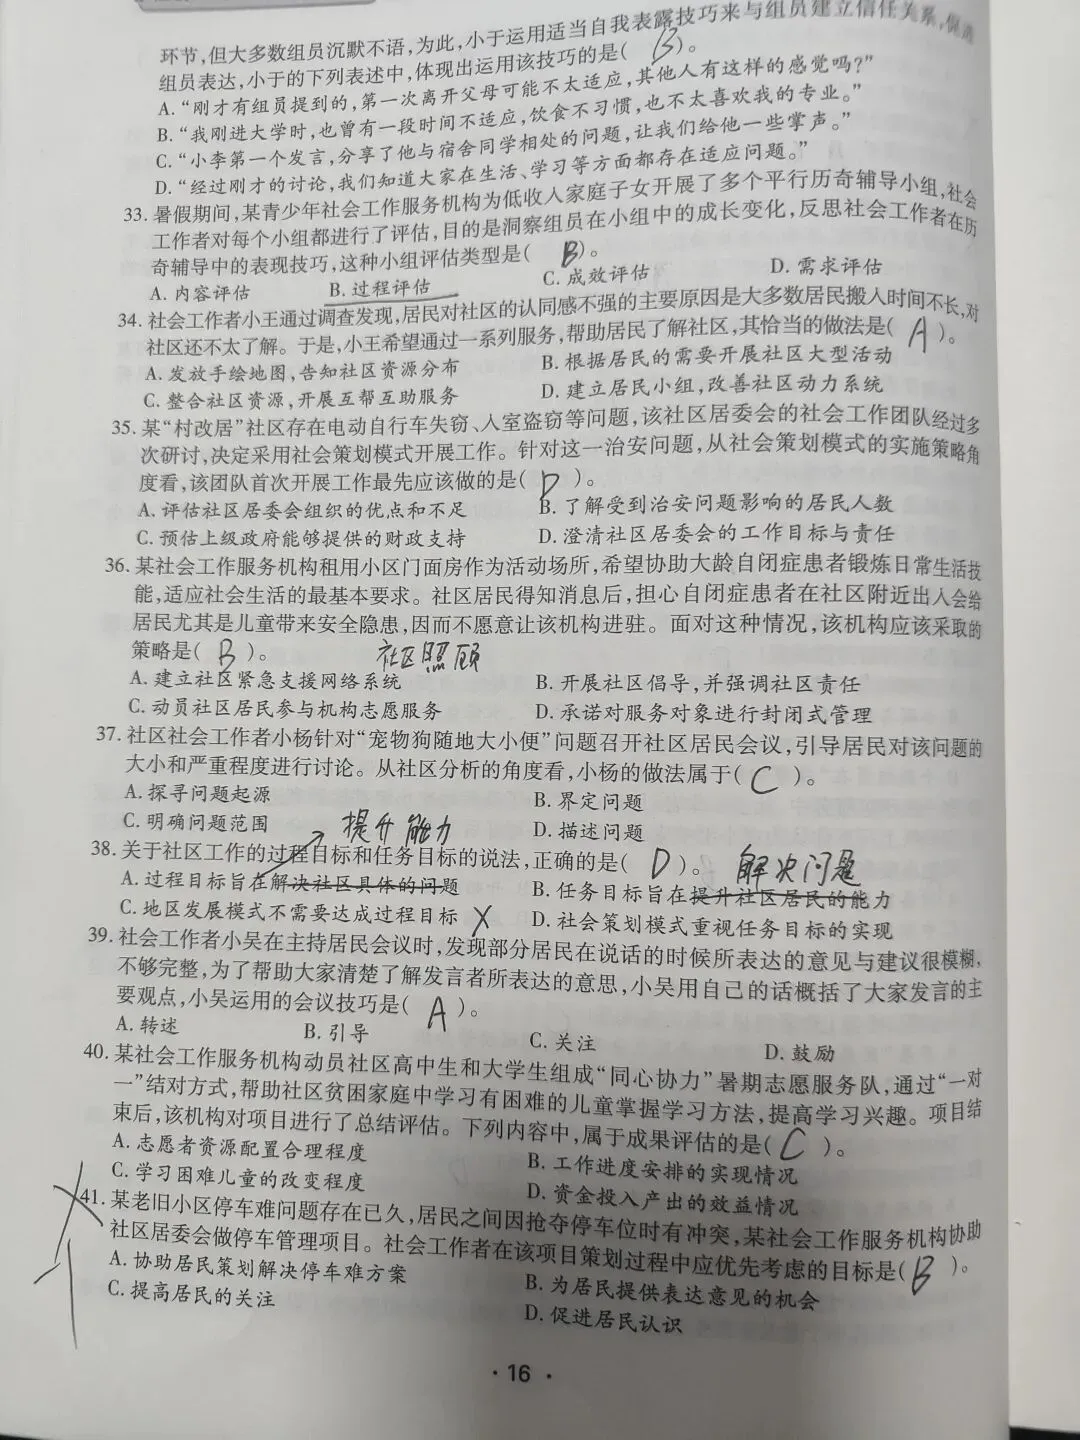 环节,但大多数组员沉默不语,为此,小于运用适当自我表露技巧来与组员建立信任关系,促进
组员表达,小于的下列表述中,体现出运用该技巧的是( B )。
A. “刚才有组员提到的,第一次离开父母可能不太适应,其他人有这样的感觉吗?”
B. “我刚进大学时,也曾有一段时间不适应,饮食不习惯,也不太喜欢我的专业。”
C. “小李第一个发言,分享了他与宿舍同学相处的问题,让我们给他一些掌声。”
D. “经过刚才的讨论,我们知道大家在生活、学习等方面都存在适应问题。”
33. 暑假期间,某青少年社会工作服务机构为低收入家庭子女开展了多个平行历奇辅导小组,社会
工作者对每个小组都进行了评估,目的是洞察组员在小组中的成长变化,反思社会工作者在历
奇辅导中的表现技巧,这种小组评估类型是( B )。
A. 内容评估 B. 过程评估 C. 成效评估 D. 需求评估
34. 社会工作者小王通过调查发现,居民对社区的认同感不强的主要原因是大多数居民搬入时间不长,对
社区还不太了解。于是,小王希望通过一系列服务,帮助居民了解社区,其恰当的做法是( A )。
A. 发放手绘地图,告知社区资源分布 B. 根据居民的需要开展社区大型活动
C. 整合社区资源,开展互帮互助服务 D. 建立居民小组,改善社区动力系统
35. 某“村改居”社区存在电动自行车失窃、入室盗窃等问题,该社区居委会的社会工作团队经过多
次研讨,决定采用社会策划模式开展工作。针对这一治安问题,从社会策划模式的实施策略角
度看,该团队首次开展工作最先应该做的是( D )。
A. 评估社区居委会组织的优点和不足 B. 了解受到治安问题影响的居民人数
C. 预估上级政府能够提供的财政支持 D. 澄清社区居委会的工作目标与责任
36. 某社会工作服务机构租用小区门面房作为活动场所,希望协助大龄自闭症患者锻炼日常生活技
能,适应社会生活的最基本要求。社区居民得知消息后,担心自闭症患者在社区附近出入会给
居民尤其是儿童带来安全隐患,因而不愿意让该机构进驻。面对这种情况,该机构应该采取的
策略是( B )。 社区照顾
A. 建立社区紧急支援网络系统 B. 开展社区倡导,并强调社区责任
C. 动员社区居民参与机构志愿服务 D. 承诺对服务对象进行封闭式管理
37. 社区社会工作者小杨针对“宠物狗随地大小便”问题召开社区居民会议,引导居民对该问题的
大小和严重程度进行讨论。从社区分析的角度看,小杨的做法属于( C )。
A. 探寻问题起源 B. 界定问题
C. 明确问题范围 D. 描述问题
提升能力
38. 关于社区工作的过程目标和任务目标的说法,正确的是( D )。 解决问题
A. 过程目标旨在解决社区具体的问题 B. 任务目标旨在提升社区居民的能力
C. 地区发展模式不需要达成过程目标 X D. 社会策划模式重视任务目标的实现
39. 社会工作者小吴在主持居民会议时,发现部分居民在说话的时候所表达的意见与建议很模糊,
不够完整,为了帮助大家清楚了解发言者所表达的意思,小吴用自己的话概括了大家发言的主
要观点,小吴运用的会议技巧是( A )。
A. 转述 B. 引导 C. 关注 D. 鼓励
40. 某社会工作服务机构动员社区高中生和大学生组成“同心协力”暑期志愿服务队,通过“一对
一”结对方式,帮助社区贫困家庭中学习有困难的儿童掌握学习方法,提高学习兴趣。项目结
束后,该机构对项目进行了总结评估。下列内容中,属于成果评估的是( C )。
A. 志愿者资源配置合理程度 B. 工作进度安排的实现情况
C. 学习困难儿童的改变程度 D. 资金投入产出的效益情况
41. 某老旧小区停车难问题存在已久,居民之间因抢夺停车位时有冲突,某社会工作服务机构协助
社区居委会做停车管理项目。社会工作者在该项目策划过程中应优先考虑的目标是( B )。
A. 协助居民策划解决停车难方案 B. 为居民提供表达意见的机会
C. 提高居民的关注 D. 促进居民认识
· 16 ·